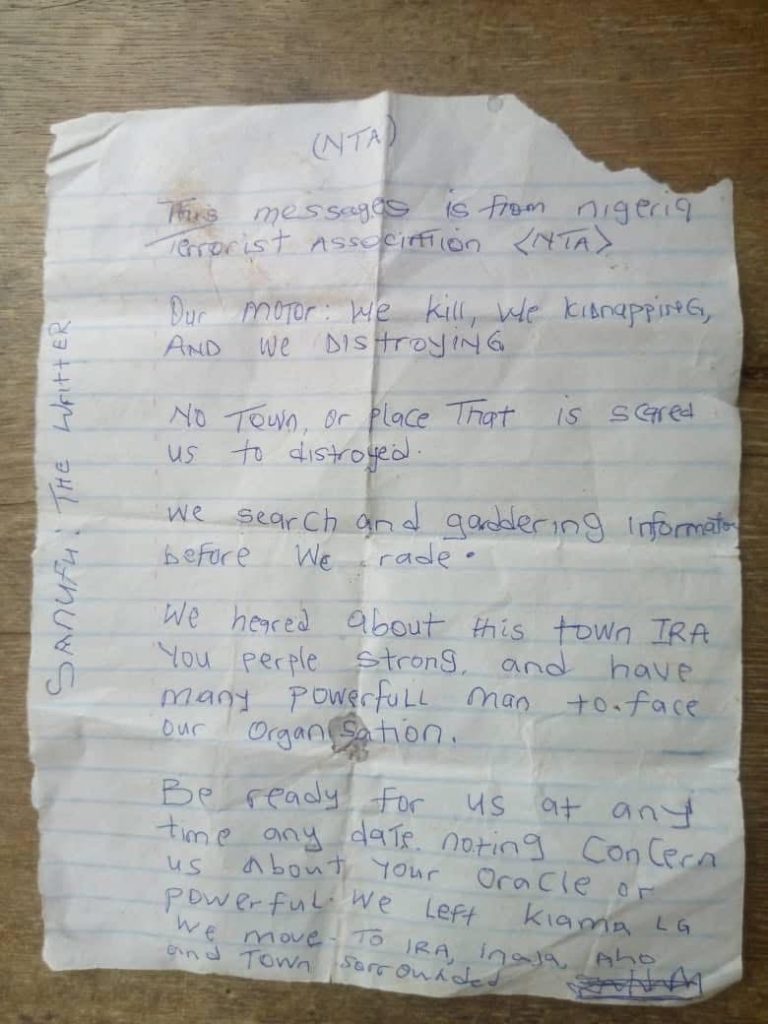 (NTA)
This messages is from nigeria
Terrorist Association <NTA>
Our motor: We kill, We kidnapping,
AND We Distroying
No Town, or place That is scared
us to distroyed.
We search and gaddering informat
before We rade.
We heared about this town IRA
You perple strong, and have
many powerfull man to.face
our organisation.
Be ready for us at any
time any date. noting Concern
us About Your Oracle or
powerful. We Left Kiama LG
We move. To IRA, Inaja, Aho
and Town sorrounded
Sanufu: The Writter